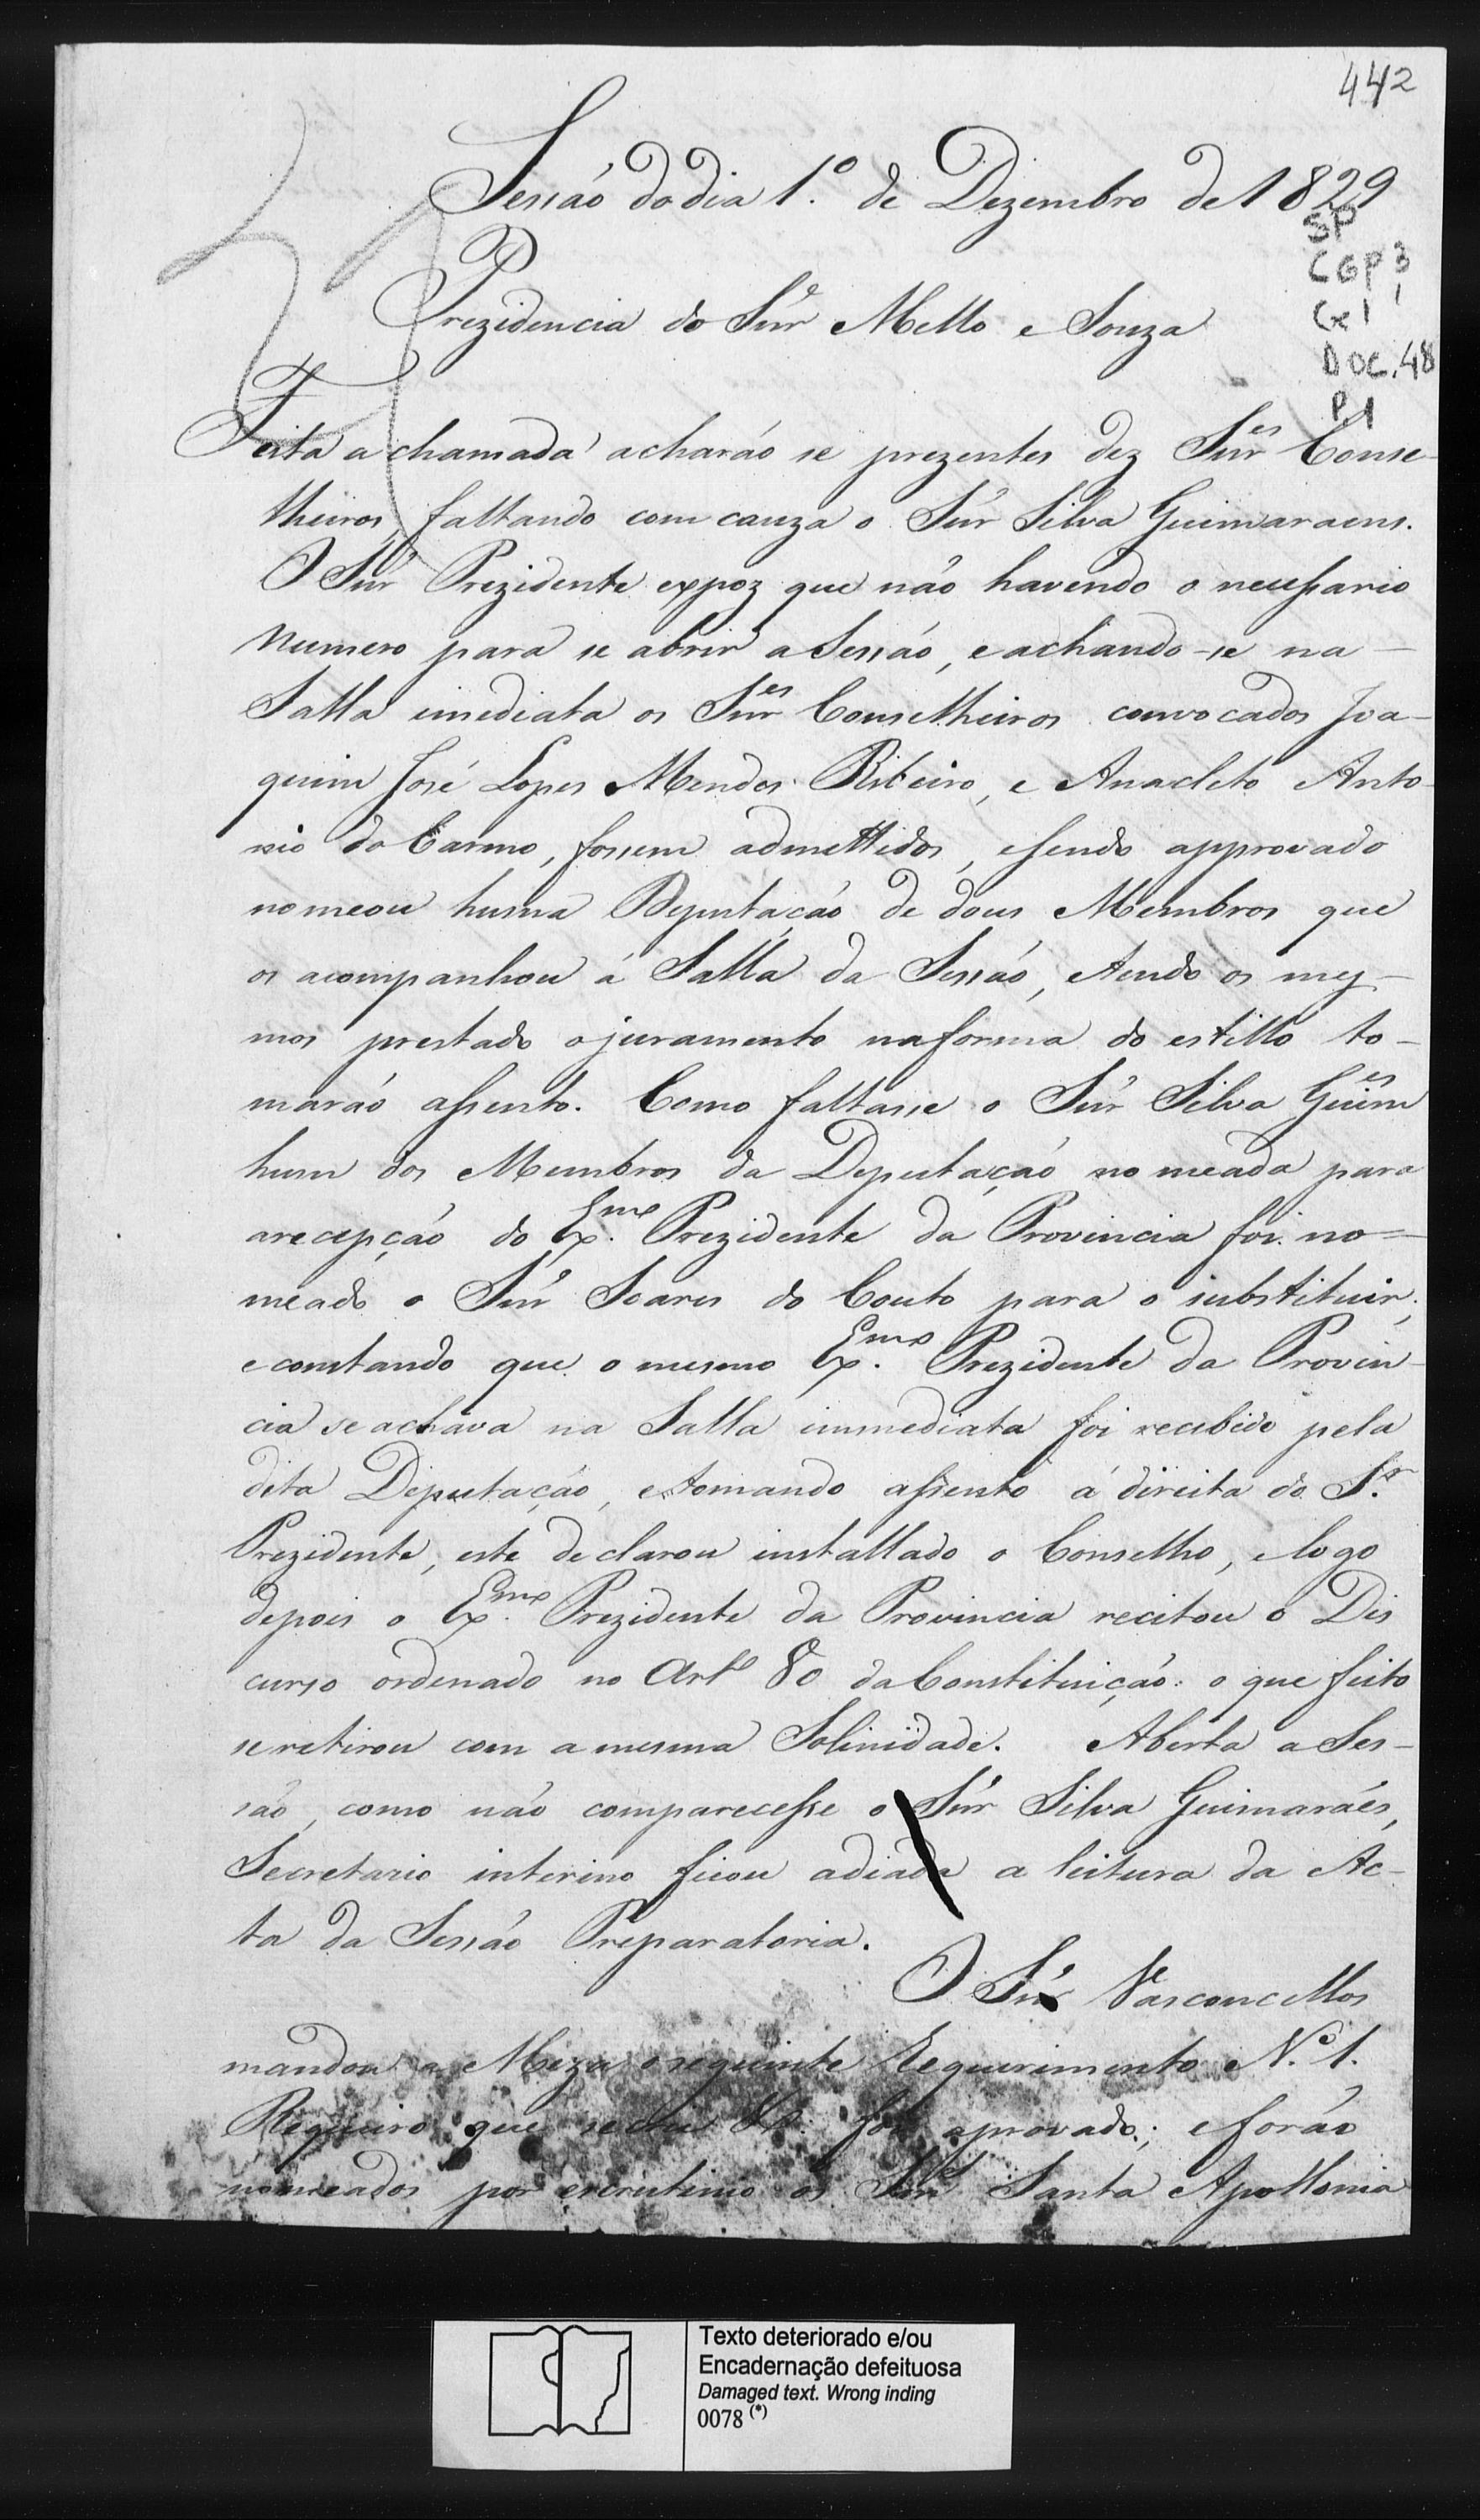 442
Sessão do dia 1.º de Dezembro de 1829
SP
CGP 3,
Cx 1
DOC. 48
P1
Prezidencia do Snr̃ Mello e Souza
Feita a chamada acharáo se prezentes dez Snr.es Conse-
lheiros, faltando com cauza o Snr̃ Silva Guimaraens.
O Snr̃ Prezidente expoz que não havendo o necessario
numero para se abrir a Sessão, e achando-se na
Salla imediata os Snr.es Conselheiros convocados Joa-
quim José Lopes Mendes Ribeiro, e Anacleto Anto-
nio do Carmo, fossem admettidos, e sendo approvado
nomeou huma Deputação de dous Membros que
os acompanhou á Salla da Sessão, e tendo os mez-
mos prestado o juramento na forma do estillo to-
maráo assento. Como faltasse o Snr̃ Silva Guim.es
hum dos Membros da Deputação nomeada para
a recepção do Ex.mo Prezidente da Provincia foi no=
meado o Snr̃ Soares do Couto para o substituir;
e constando que o mesmo Ex.mo Prezidente da Provin-
cia se achava na Salla immediata foi recebido pela
dita Deputação, e tomando assento á direita do S.r
Prezidente, este declarou installado o Conselho, e logo
depois o Ex.mo Prezidente da Provincia recitou o Dis
curso ordenado no Art.º 80 da Constituição: o que feito
se retirou com a mesma Solinidade. Aberta a Ses-
são, como não comparecesse o Snr̃ Silva Guimarães,
Secretario interino ficou adiada a leitura da Ac-
ta da Sessão Preparatoria.
O Snr̃ Vasconcellos
mandou a Meza o seguinte Requerimento N.º 1.
Requeiro que foi aprovado; e foráo
nomeados por escrutinio os Snr̃ Santa Apollonia
Texto deteriorado e/ou
Encadernação defeituosa
Damaged text. Wrong inding
0078 (*)